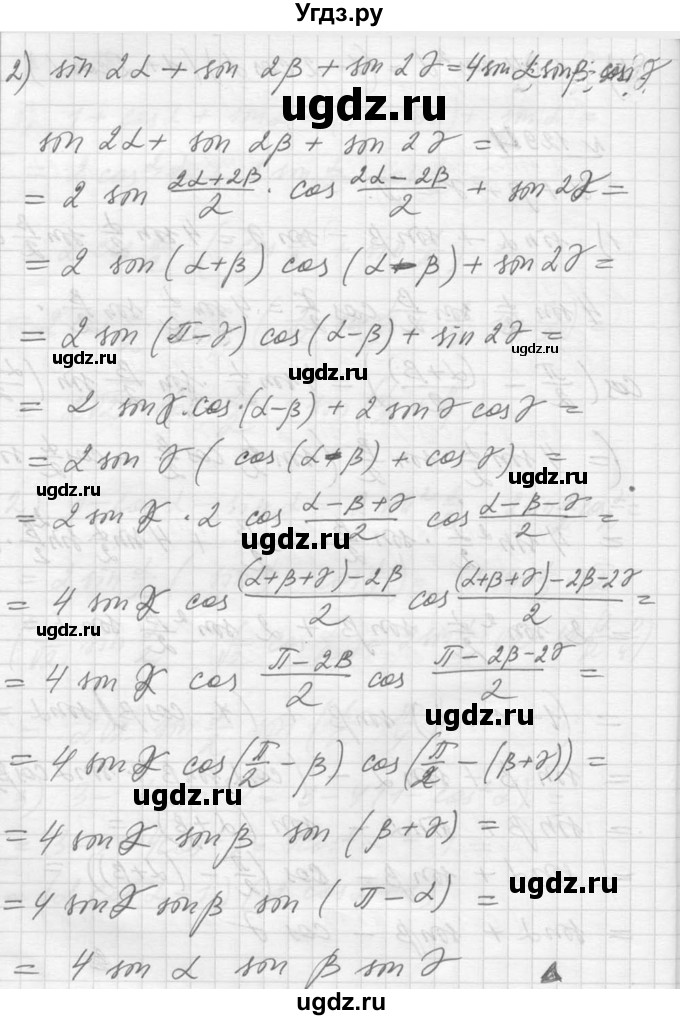 Угдз.ру
2) sin 2α + sin 2β + sin 2γ = 4 sin α · sin β · sin γ
ugdz.ru
sin 2α + sin 2β + sin 2γ =
= 2 sin (2α+2β)/2 · cos (2α-2β)/2 + sin 2γ =
= 2 sin (α+β) cos (α-β) + sin 2γ =
= 2 sin (π-γ) cos (α-β) + sin 2γ =
ugdz.ru ugdz.ru ugdz.ru
= 2 sin γ · cos · (α-β) + 2 sin γ cos γ =
= 2 sin γ ( cos (α-β) + cos γ ) =
ugdz.ru ugdz.ru
= 2 sin γ · 2 cos (α-β+γ)/2 cos (α-β-γ)/2 =
ugdz.ru
= 4 sin γ cos ((α+β+γ)-2β)/2 cos ((α+β+γ)-2β-2γ)/2 =
ugdz.ru
= 4 sin γ cos (π-2β)/2 cos (π-2β-2γ)/2 =
ugdz.ru
= 4 sin γ cos (π/2 - β) cos (π/2 - (β+γ)) =
ugdz.ru
= 4 sin γ sin β sin (β+γ) =
= 4 sin γ sin β sin (π-α) =
ugdz.ru
= 4 sin α sin β sin γ ▲
ugdz.ru